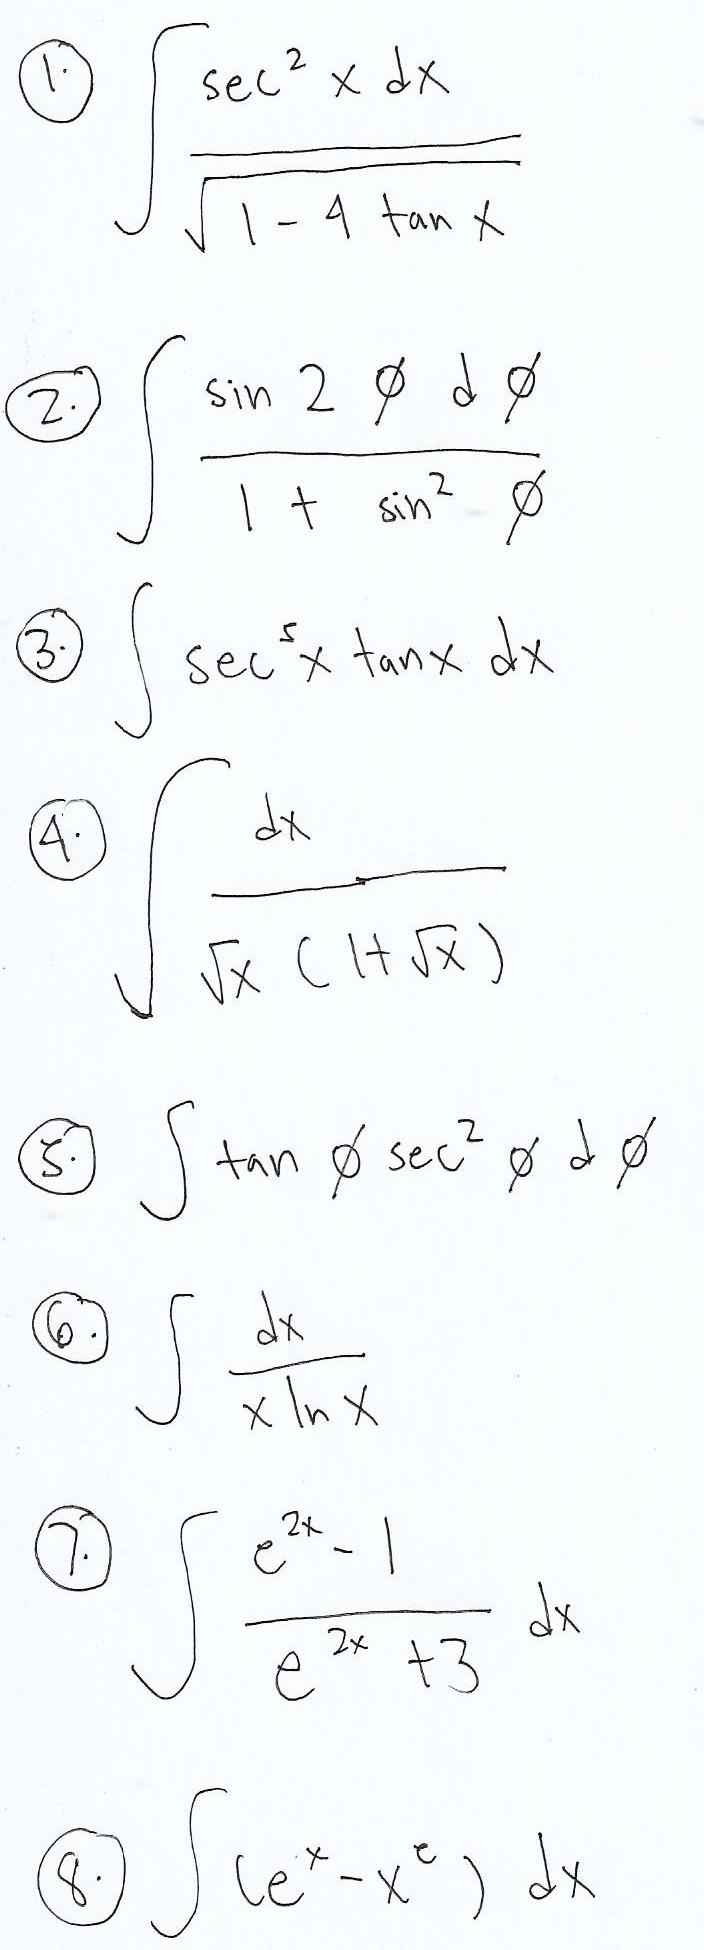 1. ∫ sec² x dx
√1 - 4 tan x
2. ∫ sin 2 ø d ø
1 + sin² ø
3. ∫ sec⁵x tanx dx
4. ∫ dx
√x (1+√x)
5. ∫ tan ø sec² ø d ø
6. ∫ dx
x ln x
7. ∫ e²ˣ - 1
dx
e²ˣ +3
8. ∫ (eˣ - xᵉ) dx